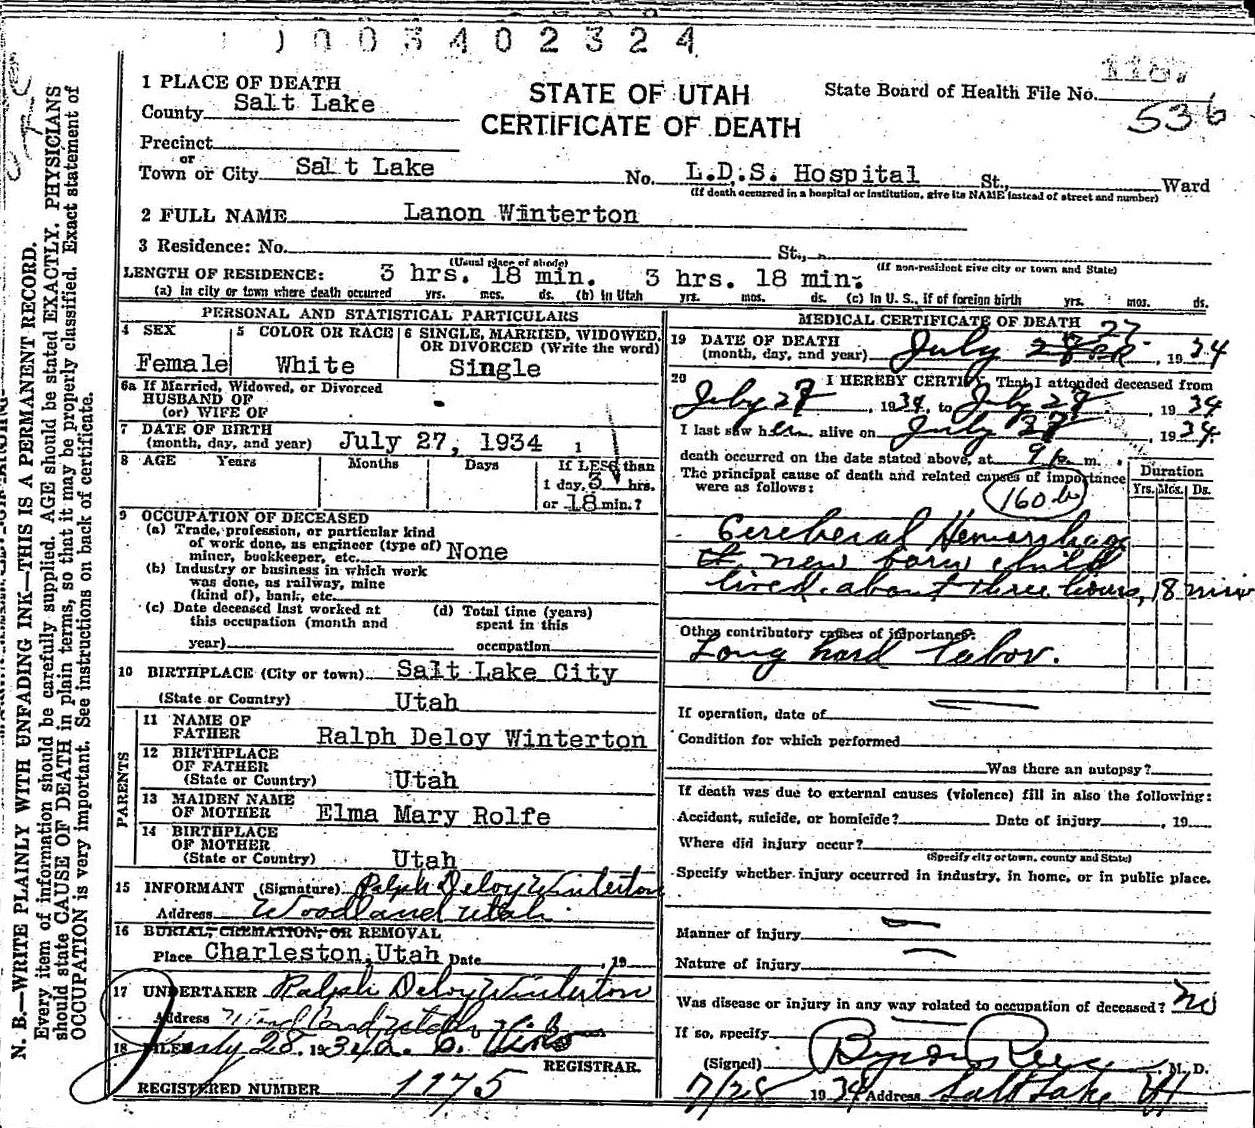 0003402324
1 PLACE OF DEATH
STATE OF UTAH
CERTIFICATE OF DEATH
State Board of Health File No.
536
County Salt Lake
Precinct
or
Town or City Salt Lake No. L.D.S. Hospital St., Ward
(If death occurred in a hospital or institution, give its NAME instead of street and number)
2 FULL NAME Lanon Winterton
3 Residence: No. St.,
(Usual place of abode) (If non-resident give city or town and State)
LENGTH OF RESIDENCE: 3 hrs. 18 min. 3 hrs. 18 min.
(a) In city or town where death occurred yrs. mos. ds. (b) In Utah yrs. mos. ds. (c) In U. S., if of foreign birth yrs. mos. ds.
PERSONAL AND STATISTICAL PARTICULARS
4 SEX 5 COLOR OR RACE 6 SINGLE, MARRIED, WIDOWED, OR DIVORCED (Write the word)
Female White Single
6a If Married, Widowed, or Divorced
HUSBAND OF
(or) WIFE OF
7 DATE OF BIRTH
(month, day, and year) July 27, 1934
8 AGE Years Months Days If LESS than
1 day, 3 hrs.
or 18 min.?
9 OCCUPATION OF DECEASED
(a) Trade, profession, or particular kind
of work done, as engineer (type of)
miner, bookkeeper, etc. None
(b) Industry or business in which work
was done, as railway, mine
(kind of), bank, etc.
(c) Date deceased last worked at
this occupation (month and
year)
(d) Total time (years)
spent in this
occupation
10 BIRTHPLACE (City or town) Salt Lake City
(State or Country) Utah
PARENTS
11 NAME OF
FATHER Ralph Deloy Winterton
12 BIRTHPLACE
OF FATHER
(State or Country) Utah
13 MAIDEN NAME
OF MOTHER Elma Mary Rolfe
14 BIRTHPLACE
OF MOTHER
(State or Country) Utah
15 INFORMANT (Signature) Ralph Deloy Winterton
Address Woodland Utah
16 BURIAL, CREMATION, OR REMOVAL
Place Charleston, Utah Date , 19
17 UNDERTAKER Ralph Deloy Winterton
Address Woodland Utah
18 FILED July 28, 1934
REGISTRAR.
REGISTERED NUMBER 1175
MEDICAL CERTIFICATE OF DEATH
19 DATE OF DEATH
(month, day, and year) July 27 , 1934
20 I HEREBY CERTIFY, That I attended deceased from
July 27 , 1934, to July 27 , 1934
I last saw her alive on July 27 , 1934.
death occurred on the date stated above, at 9 p. m.
The principal cause of death and related causes of importance
were as follows:
Duration
Yrs. Mos. Ds.
160 b
Cerebral Hemorrhage
of new born child
lived about three hours, 18 min
Other contributory causes of importance:
Long hard labor.
If operation, date of
Condition for which performed
Was there an autopsy?
If death was due to external causes (violence) fill in also the following:
Accident, suicide, or homicide? Date of injury , 19
Where did injury occur?
(Specify city or town, county and State)
Specify whether injury occurred in industry, in home, or in public place.
Manner of injury
Nature of injury
Was disease or injury in any way related to occupation of deceased? No
If so, specify
(Signed) Byron Rees, M. D.
7/28 1934 Address Salt Lake Ut
N. B.—WRITE PLAINLY WITH UNFADING INK—THIS IS A PERMANENT RECORD.
Every item of information should be carefully supplied. AGE should be stated EXACTLY. PHYSICIANS
should state CAUSE OF DEATH in plain terms, so that it may be properly classified. Exact statement of
OCCUPATION is very important. See instructions on back of certificate.